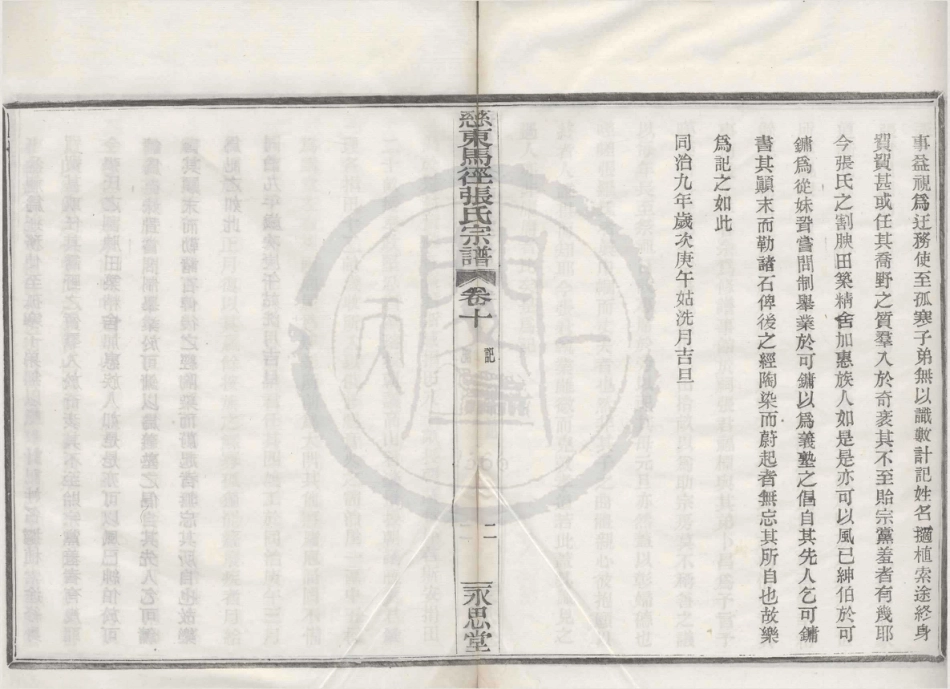 事益視爲迂務使至孤寒子弟無以識數計記姓名擿植索途終身
貿貿甚或任其喬野之質羣入於奇衺其不至貽宗黨羞者有幾耶
今張氏之割腴田築精舍加惠族人如是是亦可以風已紳伯於可
鏞爲從妹壻嘗問制舉業於可鏞以爲義塾之倡自其先人乞可鏞
書其顚末而勒諸石俾後之經陶染而蔚起者無忘其所自也故樂
爲記之如此
同治九年歲次庚午姑洗月吉旦
慈東馬徑張氏宗譜 卷十 記 二 永思堂